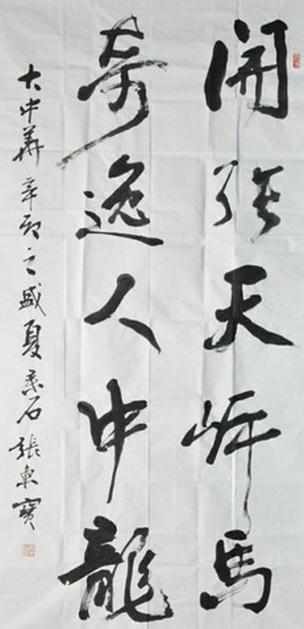 開張天岸馬
奇逸人中龍
大中華辛卯之盛夏石張東寶